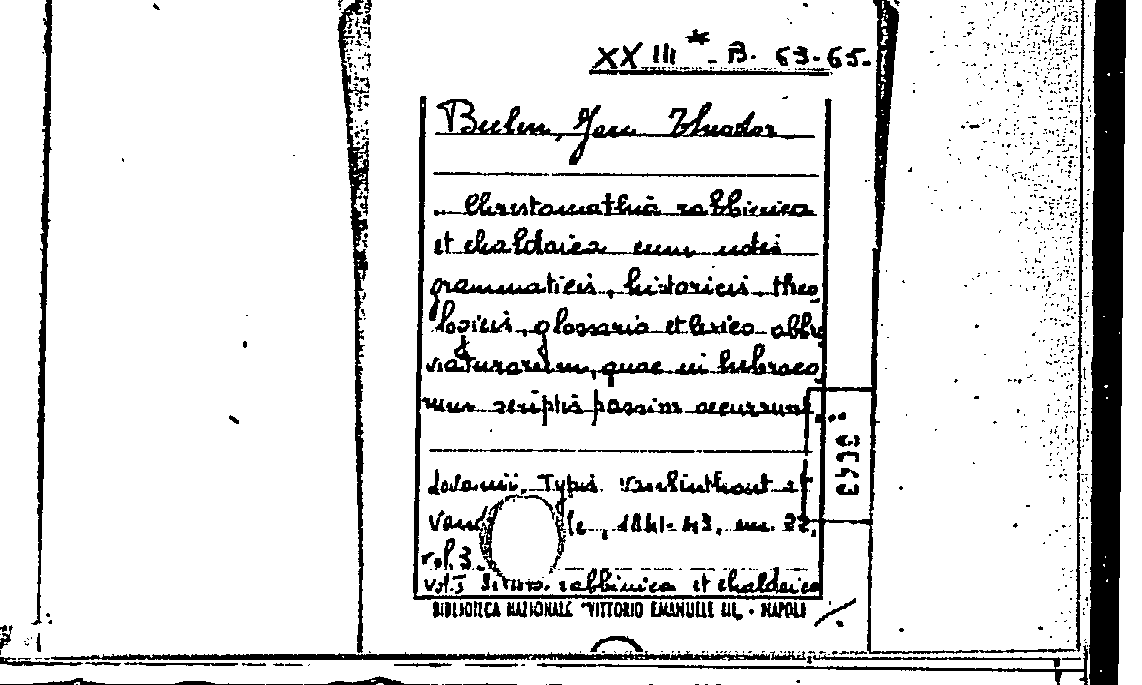 XXIII * - B. 63-65.
Beelen, Jean Theodor
Chrestomathia rabbinica
et chaldaica cum notis
grammaticis, historicis, theo
logicis, glossario et lexico abbre
viaturarum, quae in hebraeo
rum scriptis passim occurrunt
Lovanii, Typis Vanlinthout et
Van le, 1841-43, in. 22,
vol. 3.
vol. I rabbinica et chaldaica
BIBLIOTECA NAZIONALE "VITTORIO EMANUELE III, - NAPOLI